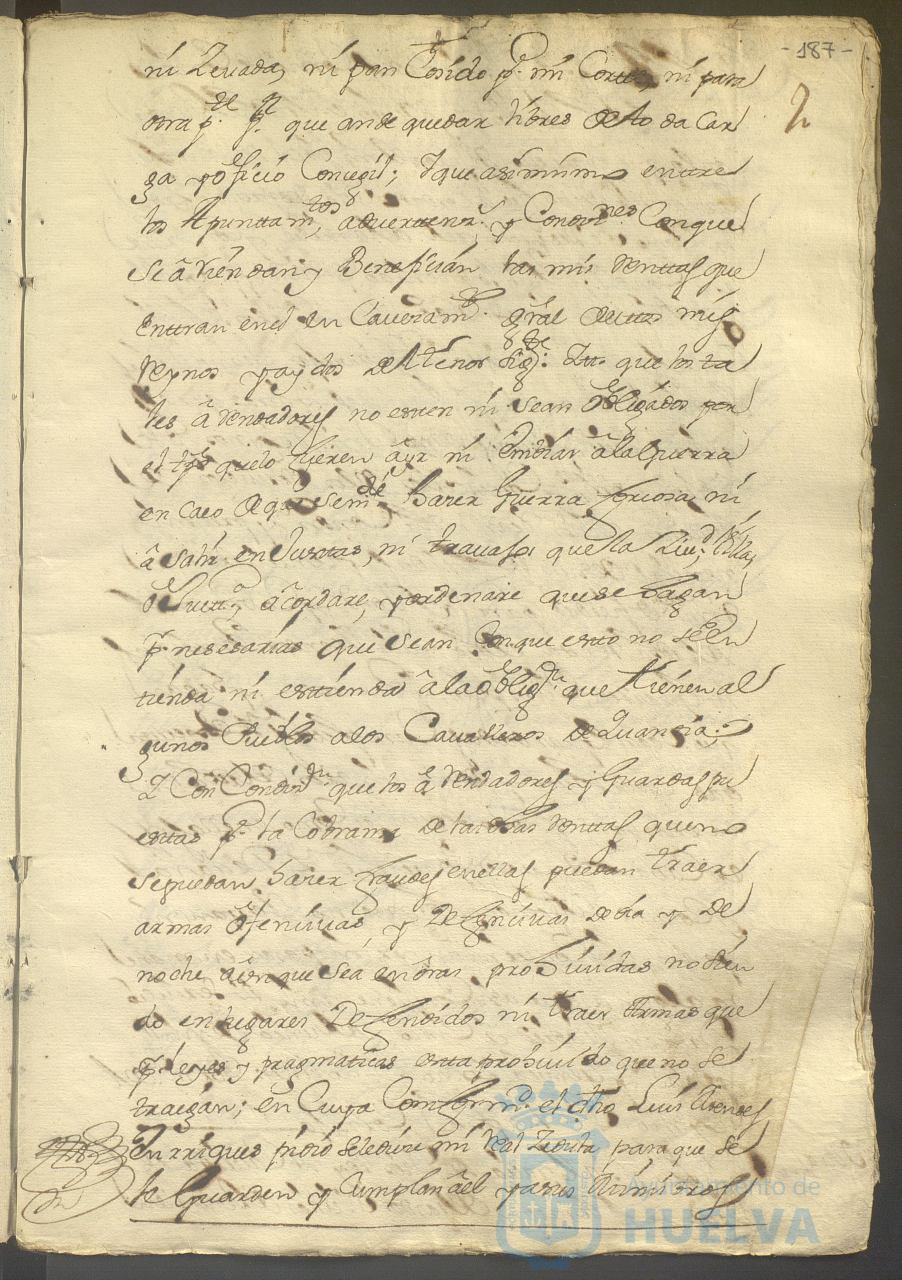 - 187 -
2
ni Zevada, ni pan Cosido pa. mi Corte, ni para
otra pte. pr. que an de quedar libres de toda Car
ga y oficio Concegil; Y que asimismo entre
los Apuntamtos, advertens. y Condisnes Conque
se arriendan y Benefisian las mis Renttas que
entran en el en Cavezamto. gral de ttos mis
Reynos y ay dos del tenor sigte: Yttn que los ta
les arrendadores no esten ni sean obligados por
el tpo que lo fueren a yr ni embiar a la Guerra
en caso de que se mde hazer Guerra forsosa ni
a salir en Justas, ni travajos que la Ciud, Villa,
o Puertto acordare, y ordenare que se hagan
pr. nesesarias que sean Conque esto no se en
tienda ni estienda a la obligon. que tienen al
gunos Pueblos a los Cavalleros de Quansia;
Y Con Condisn que los arrendadores y Guardas pu
estas pa. la Cobransa de las dhas Renttas que no
se puedan hazer fraudes en ellas puedan traer
armas ofensivas, y defensivas de dia y de
noche aunque sea en oras prohividas no sien
do en lugares defendidos ni traer Armas que
pr. leyes y pragmaticas esta prohivido que no se
traigan; en Cuya Comformd. el dho Luis
Enrriques pidio se le diese mi Real Zedula para que se
le Guarden y Cumplan a el y a sus Ministros
Ayuntamiento de
HUELVA